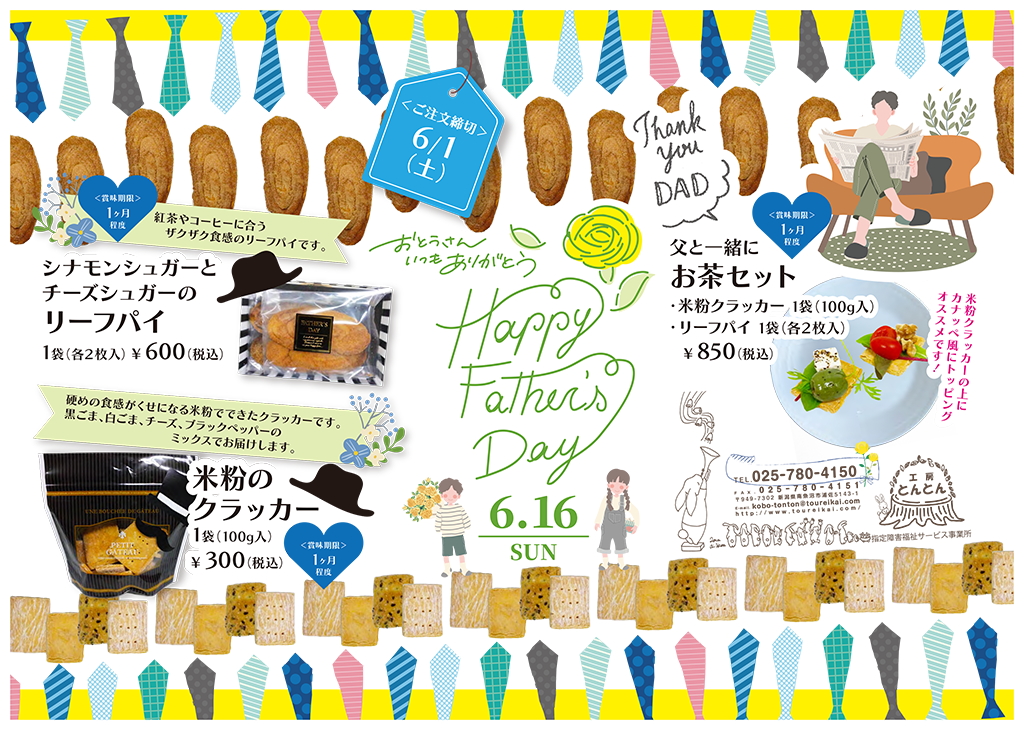 ＜ご注文締切＞
6/1
（土）
Thank
you
DAD
＜賞味期限＞
1ヶ月
程度
紅茶やコーヒーに合う
ザクザク食感のリーフパイです。
シナモンシュガーと
チーズシュガーの
リーフパイ
1袋（各2枚入）￥600（税込）
FATHER'S
DAY
硬めの食感がくせになる米粉でできたクラッカーです。
黒ごま、白ごま、チーズ、ブラックペッパーの
ミックスでお届けします。
米粉の
クラッカー
1袋（100g入）
￥300（税込）
＜賞味期限＞
1ヶ月
程度
PETIT
GATEAU
おとうさん
いつもありがとう
Happy
Father's
Day
6.16
SUN
＜賞味期限＞
1ヶ月
程度
父と一緒に
お茶セット
・米粉クラッカー 1袋（100g入）
・リーフパイ 1袋（各2枚入）
￥850（税込）
米粉クラッカーの上に
カナッペ風にトッピング
オススメです！
TEL.025-780-4150
FAX.025-780-4151
〒949-7302 新潟県南魚沼市浦佐5143-1
E-mail kobo-tonton@toureikai.com
http://www.toureikai.com/
工房
とんとん
指定障害福祉サービス事業所